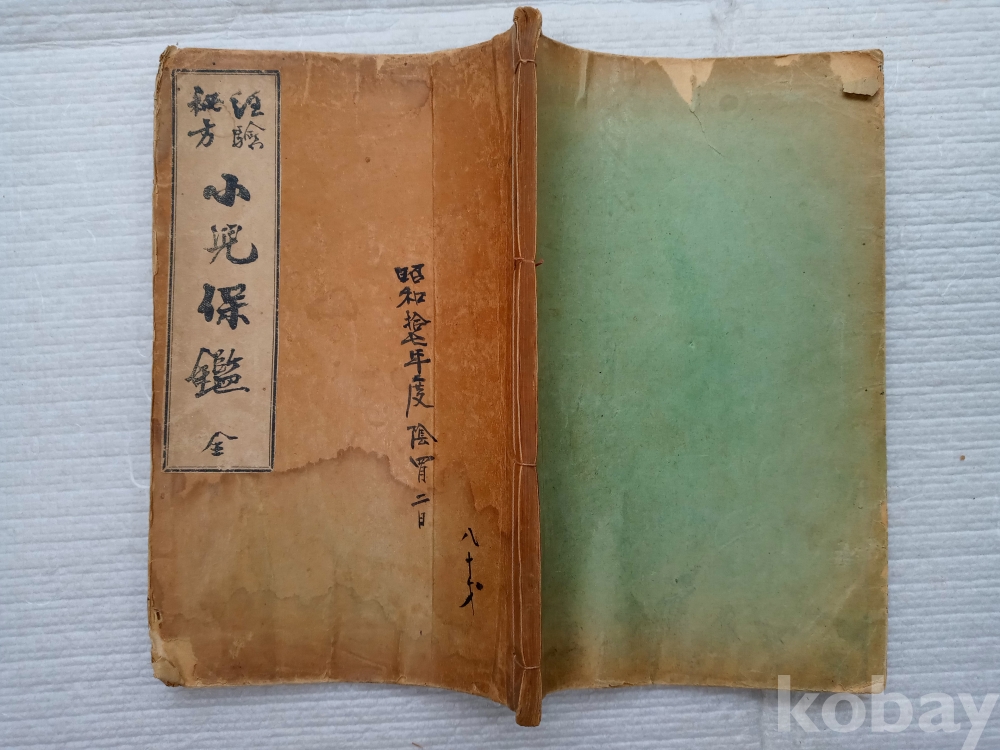 經驗
秘方
小兒保鑑 全
昭和拾七年度 陰四月二日
kobay